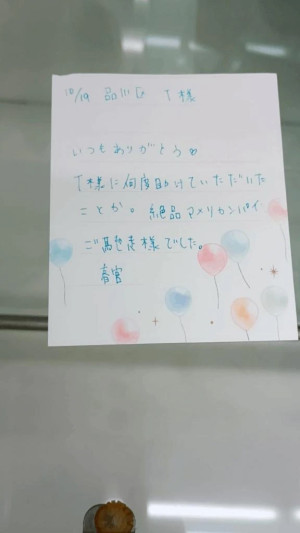 10/19 品川区 T様
いつもありがとう♡
T様に何度助けていただいた
ことか。絶品アメリカンパイ
ご馳走様でした。